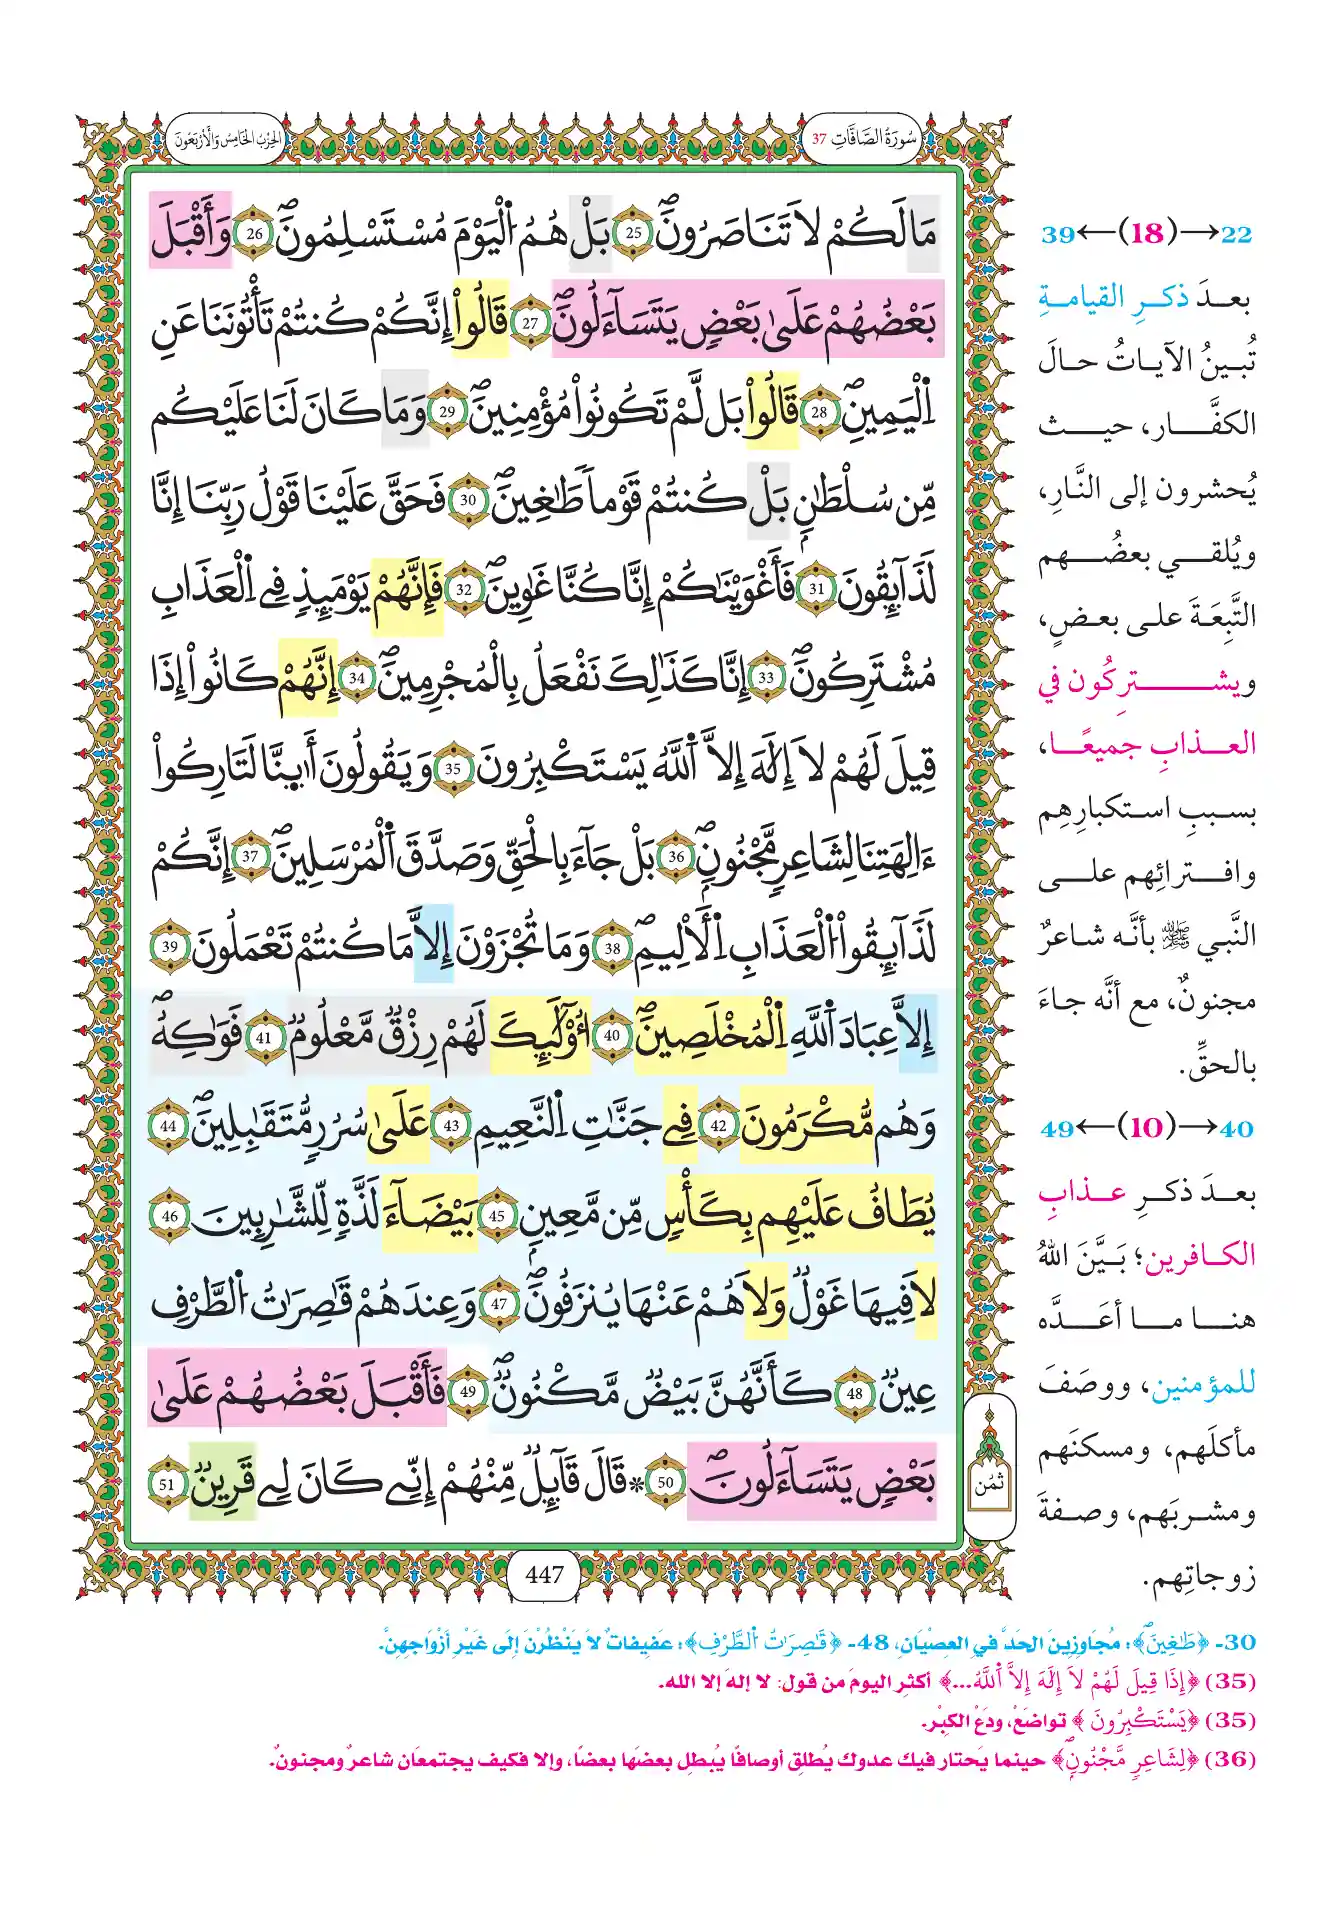 سُورَةُ الصَّافَّاتِ 37
الحِزْبُ الخَامِسُ وَالأَرْبَعُونَ
مَا لَكُمْ لَا تَنَاصَرُونَ 25 بَلْ هُمُ اُلْيَوْمَ مُسْتَسْلِمُونَ 26 وَأَقْبَلَ
بَعْضُهُمْ عَلَىٰ بَعْضٍ يَتَسَآءَلُونَ 27 قَالُواْ إِنَّكُمْ كُنتُمْ تَأْتُونَنَا عَنِ
اِلْيَمِينِ 28 قَالُواْ بَل لَّمْ تَكُونُواْ مُؤْمِنِينَ 29 وَمَا كَانَ لَنَا عَلَيْكُم
مِّن سُلْطَٰنٍ بَلْ كُنتُمْ قَوْماً طَٰغِينَ 30 فَحَقَّ عَلَيْنَا قَوْلُ رَبِّنَا إِنَّا
لَذَآئِقُونَ 31 فَأَغْوَيْنَٰكُمْ إِنَّا كُنَّا غَٰوِينَ 32 فَإِنَّهُمْ يَوْمَئِذٍ فِے اِلْعَذَابِ
مُشْتَرِكُونَ 33 إِنَّا كَذَٰلِكَ نَفْعَلُ بِالْمُجْرِمِينَ 34 إِنَّهُمْ كَانُواْ إِذَا
قِيلَ لَهُمْ لَا إِلَٰهَ إِلَّا اَللَّهُ يَسْتَكْبِرُونَ 35 وَيَقُولُونَ أَئِنَّا لَتَارِكُواْ
ءَالِهَتِنَا لِشَاعِرٍ مَّجْنُونٍ 36 بَلْ جَآءَ بِالْحَقِّ وَصَدَّقَ اَلْمُرْسَلِينَ 37 إِنَّكُمْ
لَذَآئِقُواْ اُلْعَذَابِ اِلْأَلِيمِ 38 وَمَا تُجْزَوْنَ إِلَّا مَا كُنتُمْ تَعْمَلُونَ 39
إِلَّا عِبَادَ اَللَّهِ اِلْمُخْلَصِينَ 40 أُوْلَٰٓئِكَ لَهُمْ رِزْقٌ مَّعْلُومٌ 41 فَوَٰكِهُ
وَهُم مُّكْرَمُونَ 42 فِے جَنَّٰتِ اِلنَّعِيمِ 43 عَلَىٰ سُرُرٍ مُّتَقَٰبِلِينَ 44
يُطَافُ عَلَيْهِم بِكَأْسٍ مِّن مَّعِينٍ 45 بَيْضَآءَ لَذَّةٍ لِّلشَّٰرِبِينَ 46
لَا فِيهَا غَوْلٌ وَلَا هُمْ عَنْهَا يُنزَفُونَ 47 وَعِندَهُمْ قَٰصِرَٰتُ اُلطَّرْفِ
عِينٌ 48 كَأَنَّهُنَّ بَيْضٌ مَّكْنُونٌ 49 فَأَقْبَلَ بَعْضُهُمْ عَلَىٰ
بَعْضٍ يَتَسَآءَلُونَ 50 * قَالَ قَآئِلٌ مِّنْهُمْ إِنِّے كَانَ لِے قَرِينٌ 51
ثُمُن
447
22→(18)←39
بعدَ ذكرِ القيامةِ
تُبينُ الآياتُ حالَ
الكفَّار، حيث
يُحشرون إلى النَّارِ،
ويُلقي بعضُهم
التَّبِعَةَ على بعضٍ،
ويشتركُون في
العذابِ جميعًا،
بسببِ استكبارِهِم
وافترائِهم على
النَّبي ﷺ بأنَّه شاعرٌ
مجنونٌ، مع أنَّه جاءَ
بالحقِّ.
40→(10)←49
بعدَ ذكرِ عذابِ
الكافرين؛ بَيَّنَ اللهُ
هنا ما أعَدَّه
للمؤمنين، ووصَفَ
مأكلَهم، ومسكنَهم
ومشربَهم، وصفةَ
زوجاتِهم.
30- ﴿طَٰغِينَ﴾: مُجَاوِزِينَ الحَدَّ فِي العِصْيَانِ، 48- ﴿قَٰصِرَٰتُ اُلطَّرْفِ﴾: عَفِيفَاتٌ لَا يَنْظُرْنَ إِلَى غَيْرِ أَزْوَاجِهِنَّ.
(35) ﴿إِذَا قِيلَ لَهُمْ لَا إِلَٰهَ إِلَّا اَللَّهُ...﴾ أكثرِ اليومَ من قول: لا إلهَ إلا الله.
(35) ﴿يَسْتَكْبِرُونَ﴾ تواضَعْ، ودَعْ الكِبْر.
(36) ﴿لِشَاعِرٍ مَّجْنُونٍ﴾ حينما يَحتار فيك عدوك يُطلِق أوصافًا يُبطل بعضَها بعضًا، وإلا فكيف يجتمعَان شاعرٌ ومجنونٌ.